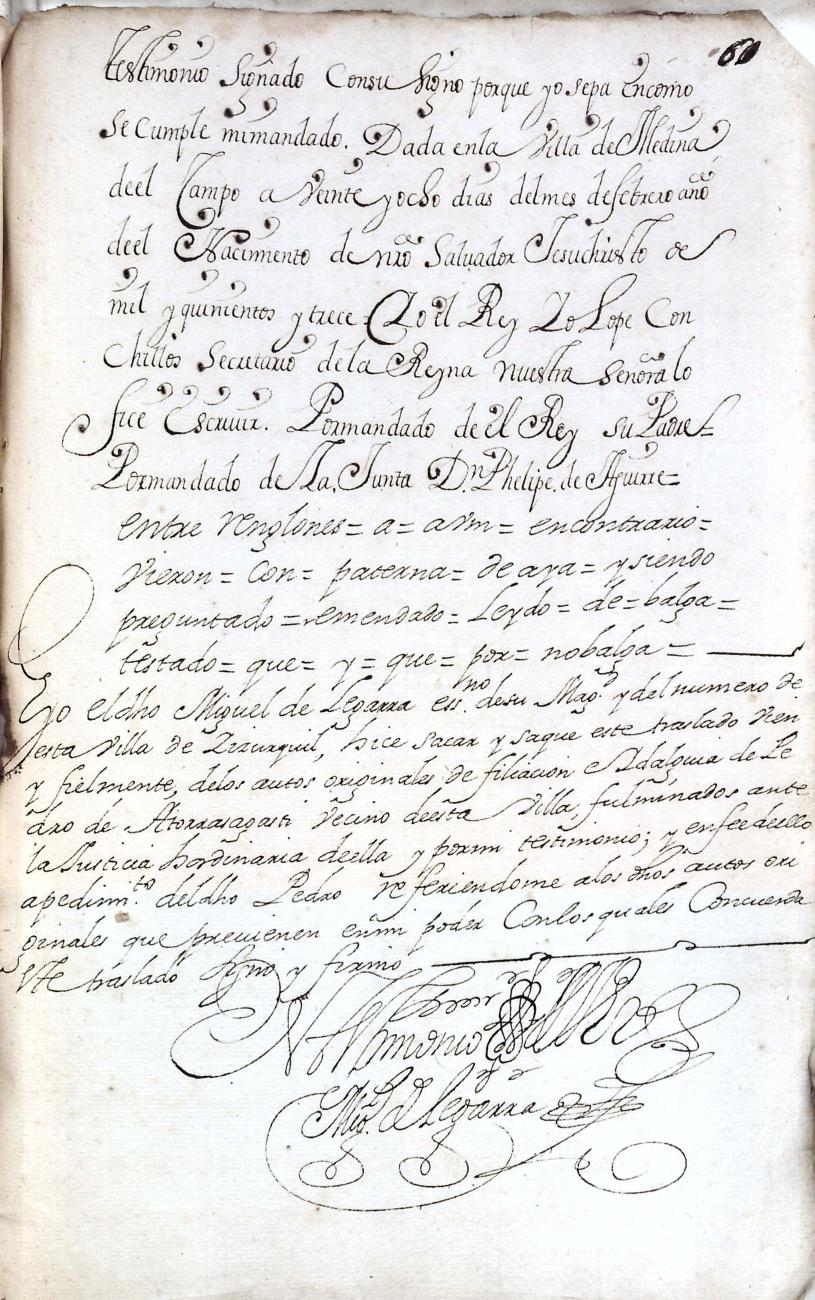 60
testimonio signado Consu signo porque yo sepa encomo
se Cumple mimandado. Dada enla Villa de Medina
deel Campo a Veinte y ocho dias delmes defebrero año
deel Nacimiento de nro Salvador Jesuchristo de
mil y quinientos y trece = Yo el Rey Yo Lope Con
chillos Secretario de la Reyna nuestra Señora lo
fice Escrivir. Pormandado de el Rey su Padre =
Pormandado de La Junta Dn. Phelipe de Aguirre =
entre renglones = a = avm = encontrario =
vieron = con = paterna = de aya = y siendo
preguntado = remendado = Leydo = de = balga =
testado = que = y = que = por = nobalga =
Eyo eldho Miguel de Legarra essno. desu Magd. y del numero de
esta Villa de Zizurquil, hice sacar y saque este traslado vien
y fielmente, delos autos originales de filiacion e Ydalguia de Pe
dro de Atorrasagasti Vecino deesta Villa, fulminados ante
la Justicia hordinaria deella y pormi testimonio; y enfee deello
apedimto. deldho Pedro refiriendome alos dhos autos ori
ginales que previenen enmi poder Conlos quales Concuerda
este traslado signo y firmo
Migl. D Legarra